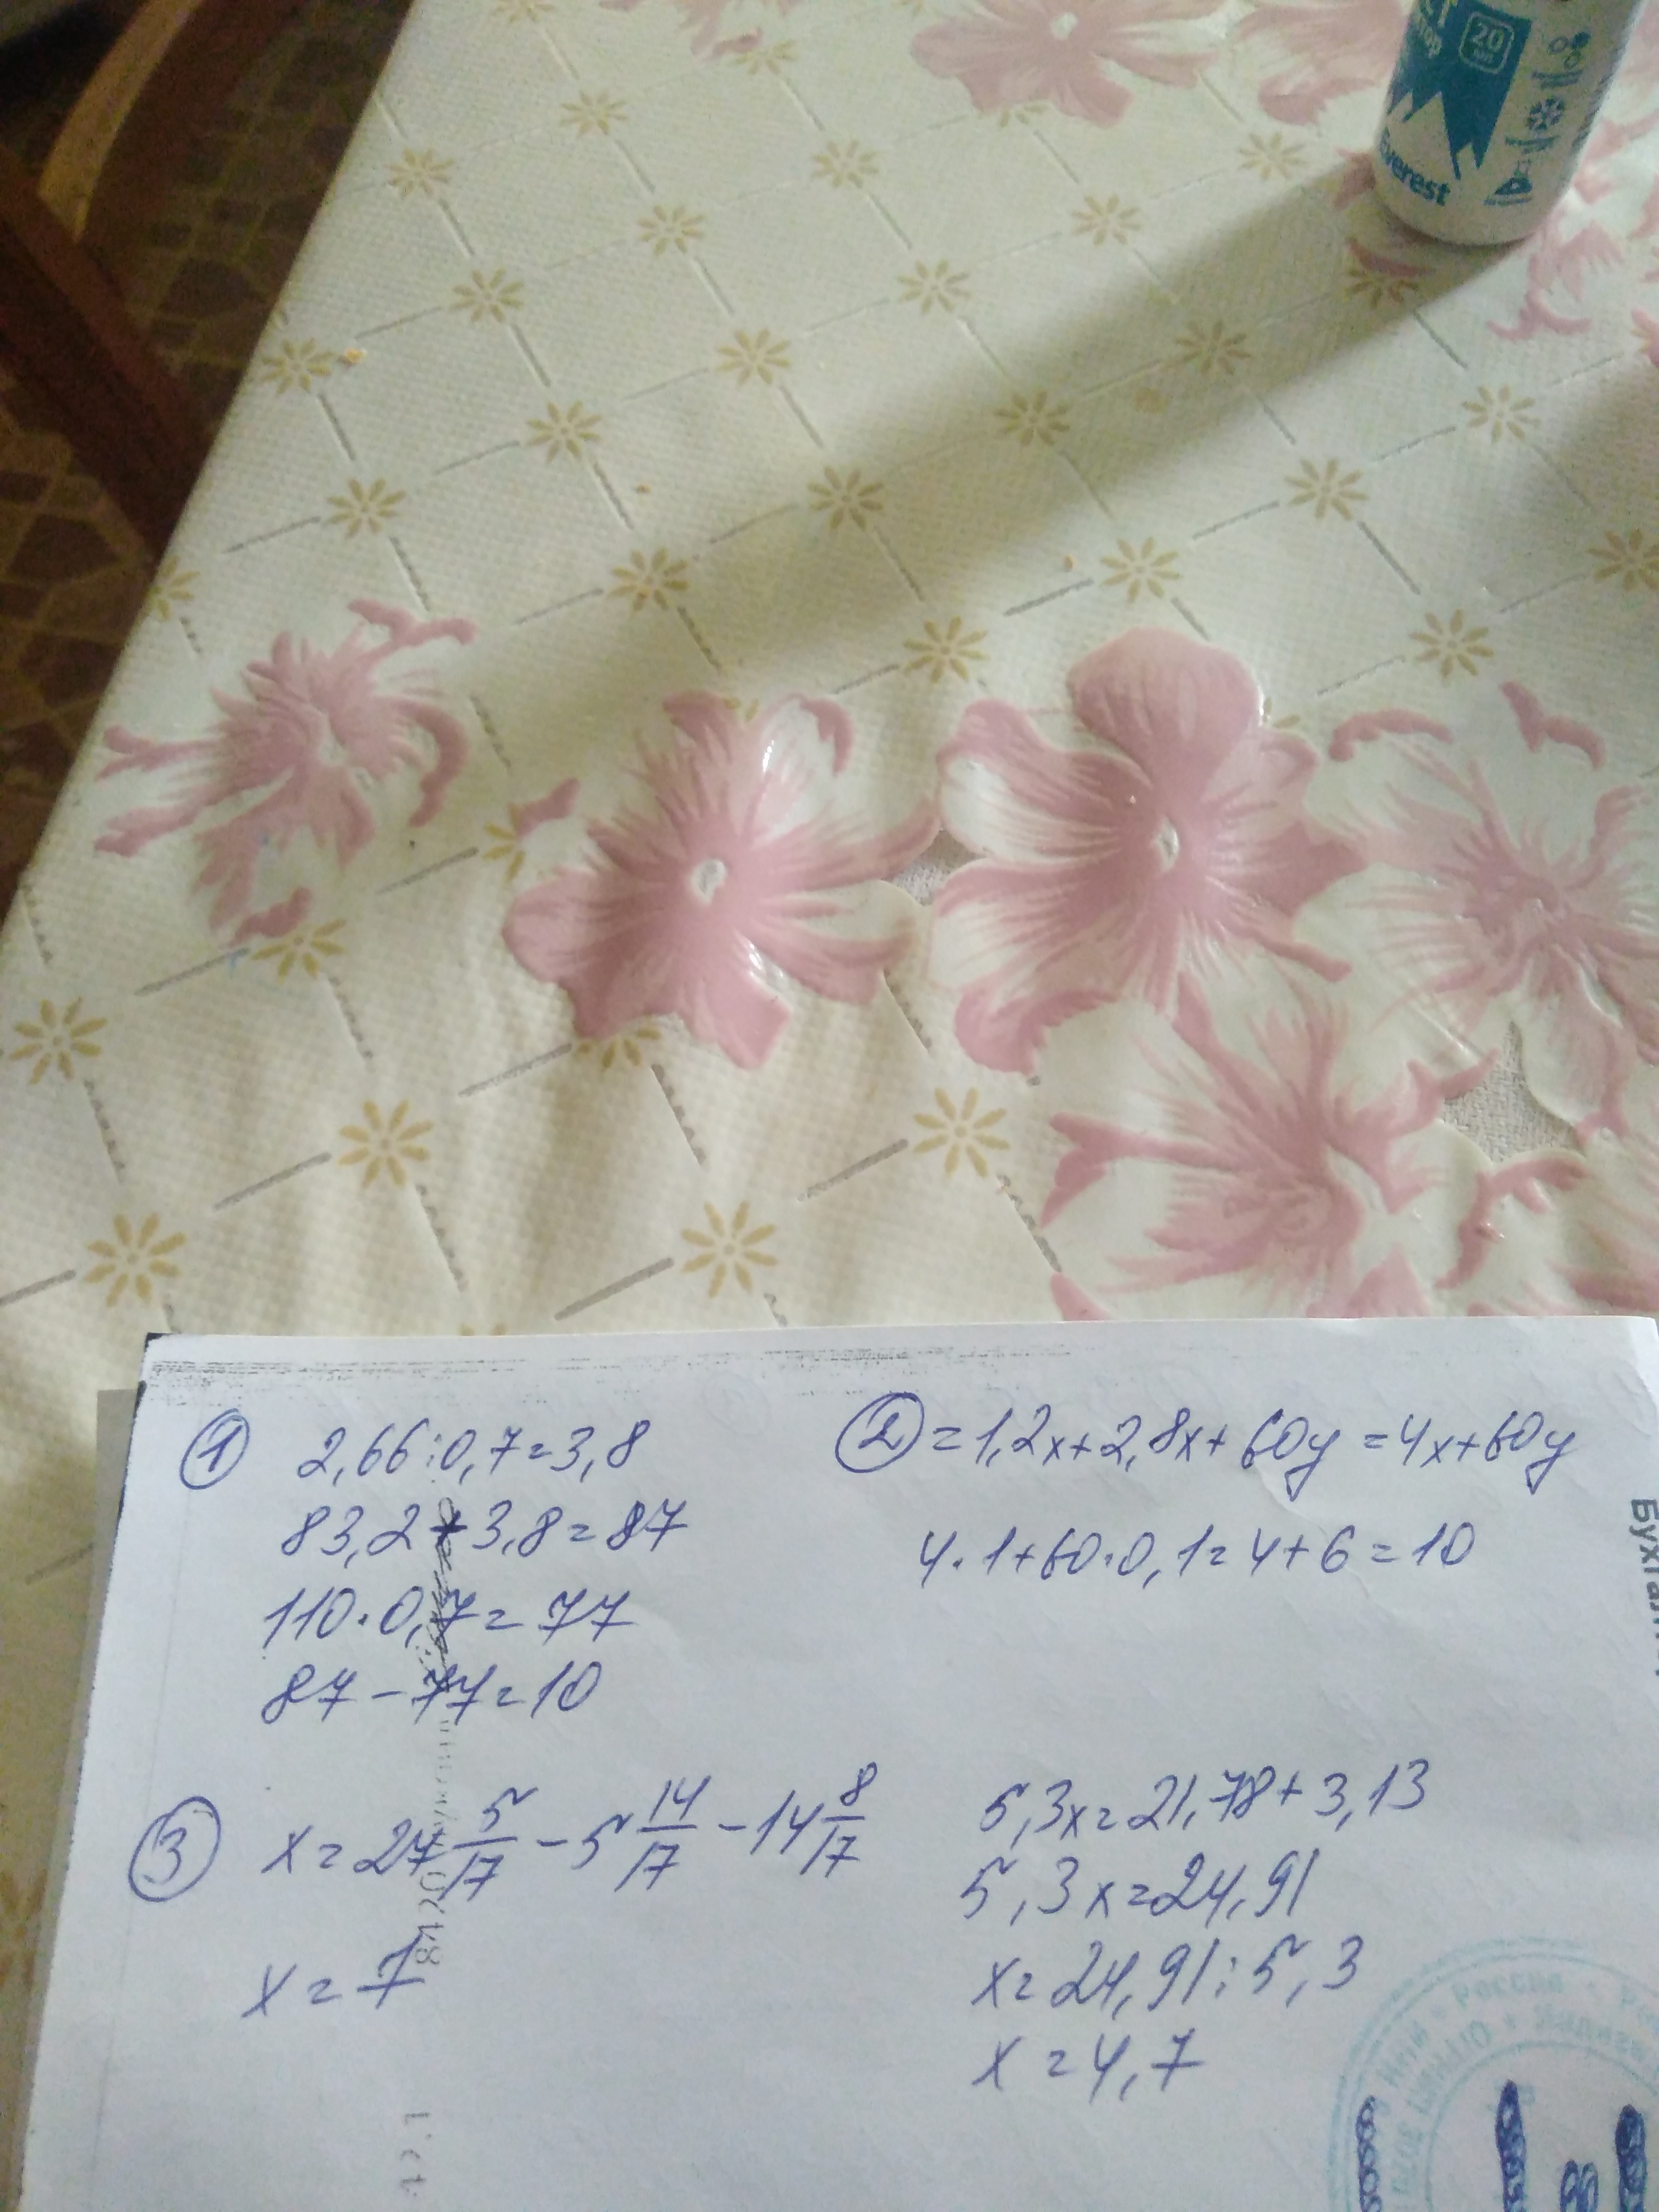 20
Everest
① 2,66:0,7=3,8
83,2+3,8=87
110·0,7=77
87-77=10
② =1,2x+2,8x+60y=4x+60y
4·1+60·0,1=4+6=10
③ x=27 5/17 - 5 14/17 - 14 8/17
x=7
5,3x=21,78+3,13
5,3x=24,91
x=24,91:5,3
x=4,7